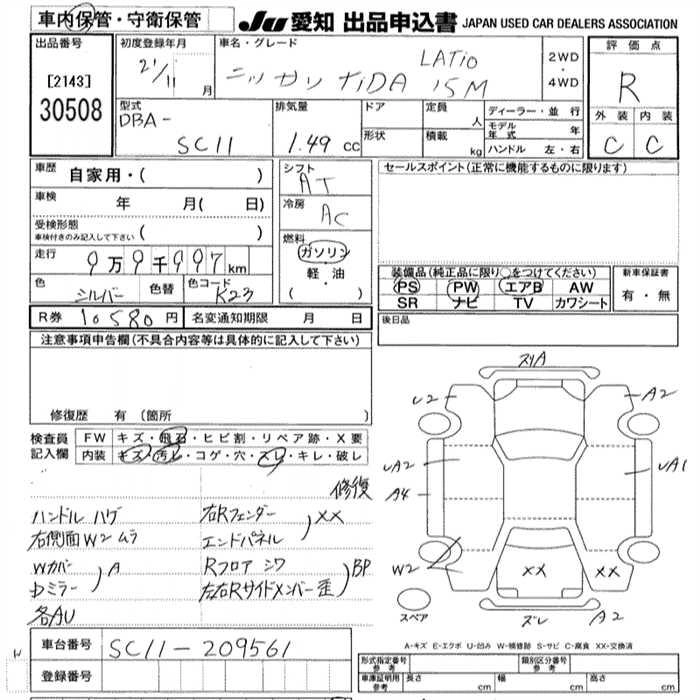 車内保管・守衛保管
JU 愛知 出品申込書 JAPAN USED CAR DEALERS ASSOCIATION
出品番号
[2143]
30508
初度登録年月
21/11 月
車名・グレード
ニッサン TIDA LATIO 15M
2WD
・
4WD
評価点
R
外装 内装
C C
型式
DBA-
SC11
排気量
1.49 cc
ドア
形状
定員
人
積載
kg
ディーラー・並 行
モデル年式 年
ハンドル 左・右
車歴
自家用・( )
車検
年 月( 日)
受検形態
車検付きのみ記入して下さい ( )
走行
9万9千997km
色
シルバー
色替
色コード
K23
R券 10580円
名変通知期限 月 日
シフト
AT
冷房
AC
燃料
ガソリン
軽・油
( )
セールスポイント(正常に機能するものに限ります)
装備品(純正品に限り○をつけてください)
PS PW エアB AW
SR ナビ TV カワシート
新車保証書
有・無
後日品
注意事項申告欄(不具合内容等は具体的に記入して下さい)
修復歴 有(箇所 )
検査員
記入欄
FW キズ・飛石・ヒビ割・リペア跡・X要
内装 キズ・汚レ・コゲ・穴・スレ・キレ・破レ
修復
ハンドル ハゲ
右側面W2 ムラ
Wカバー
Dミラー ) A
各AU
右Rフェンダー
エンドパネル ) XX
Rフロア シワ
左右Rサイドメンバー歪 ) BP
スリA
U2
A2
UA2
UA1
A4
W2
XX
XX
スペア
スレ
A2
A-キズ E-エクボ U-凹み W-補修跡 S-サビ C-腐食 XX-交換済
車台番号 SC11-209561
登録番号
形式指定番号
参考
類別区分番号
参考
車庫証明用
参考
長さ cm
幅 cm
高さ cm